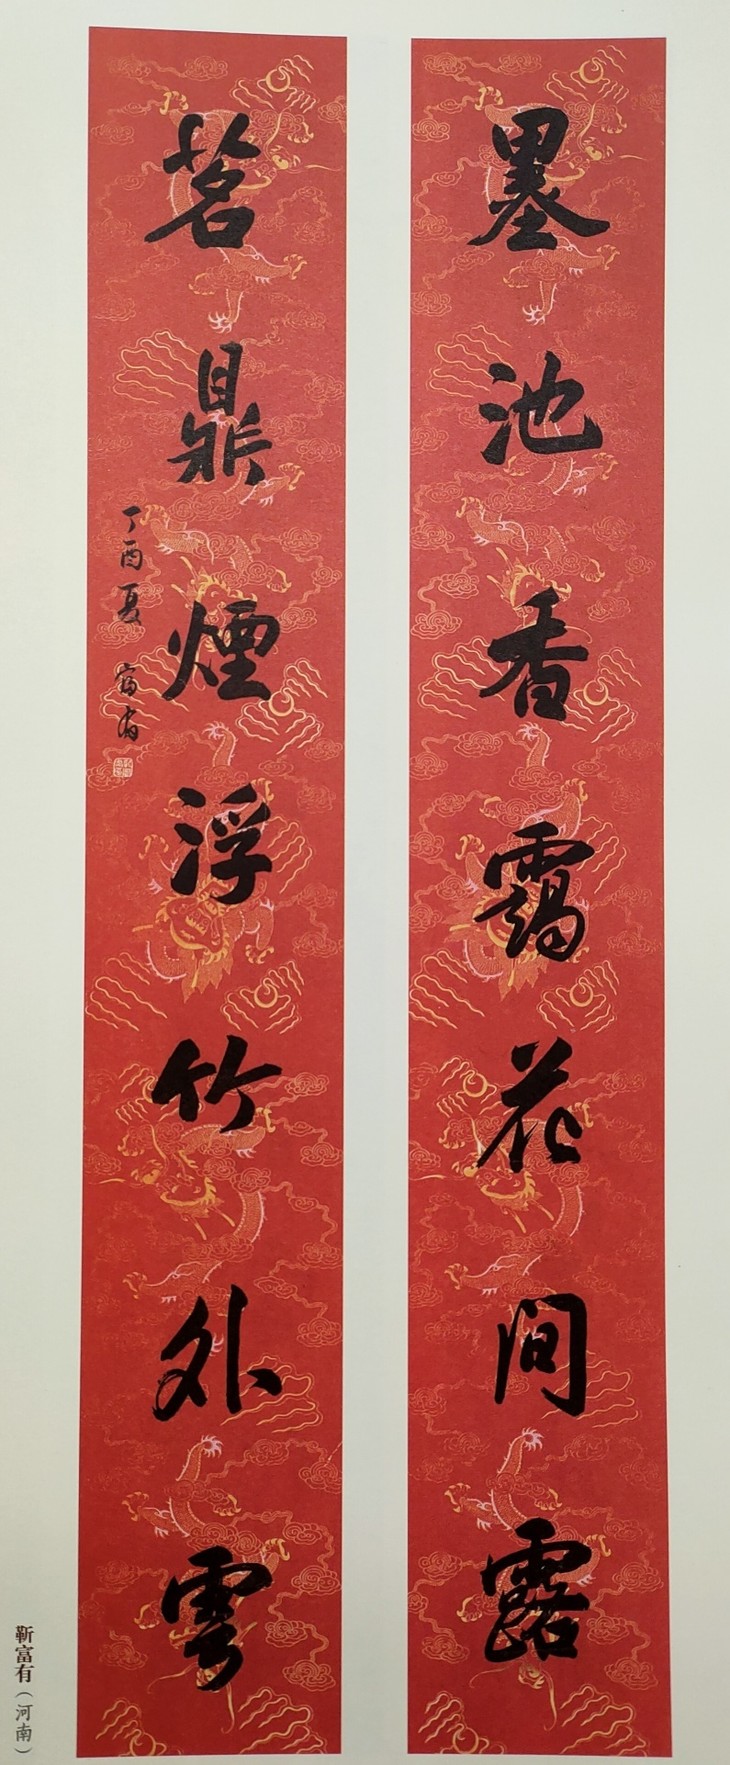 墨池香靄花间露
茗鼎煙浮竹外雲
丁酉夏 富有
靳富有（河南）